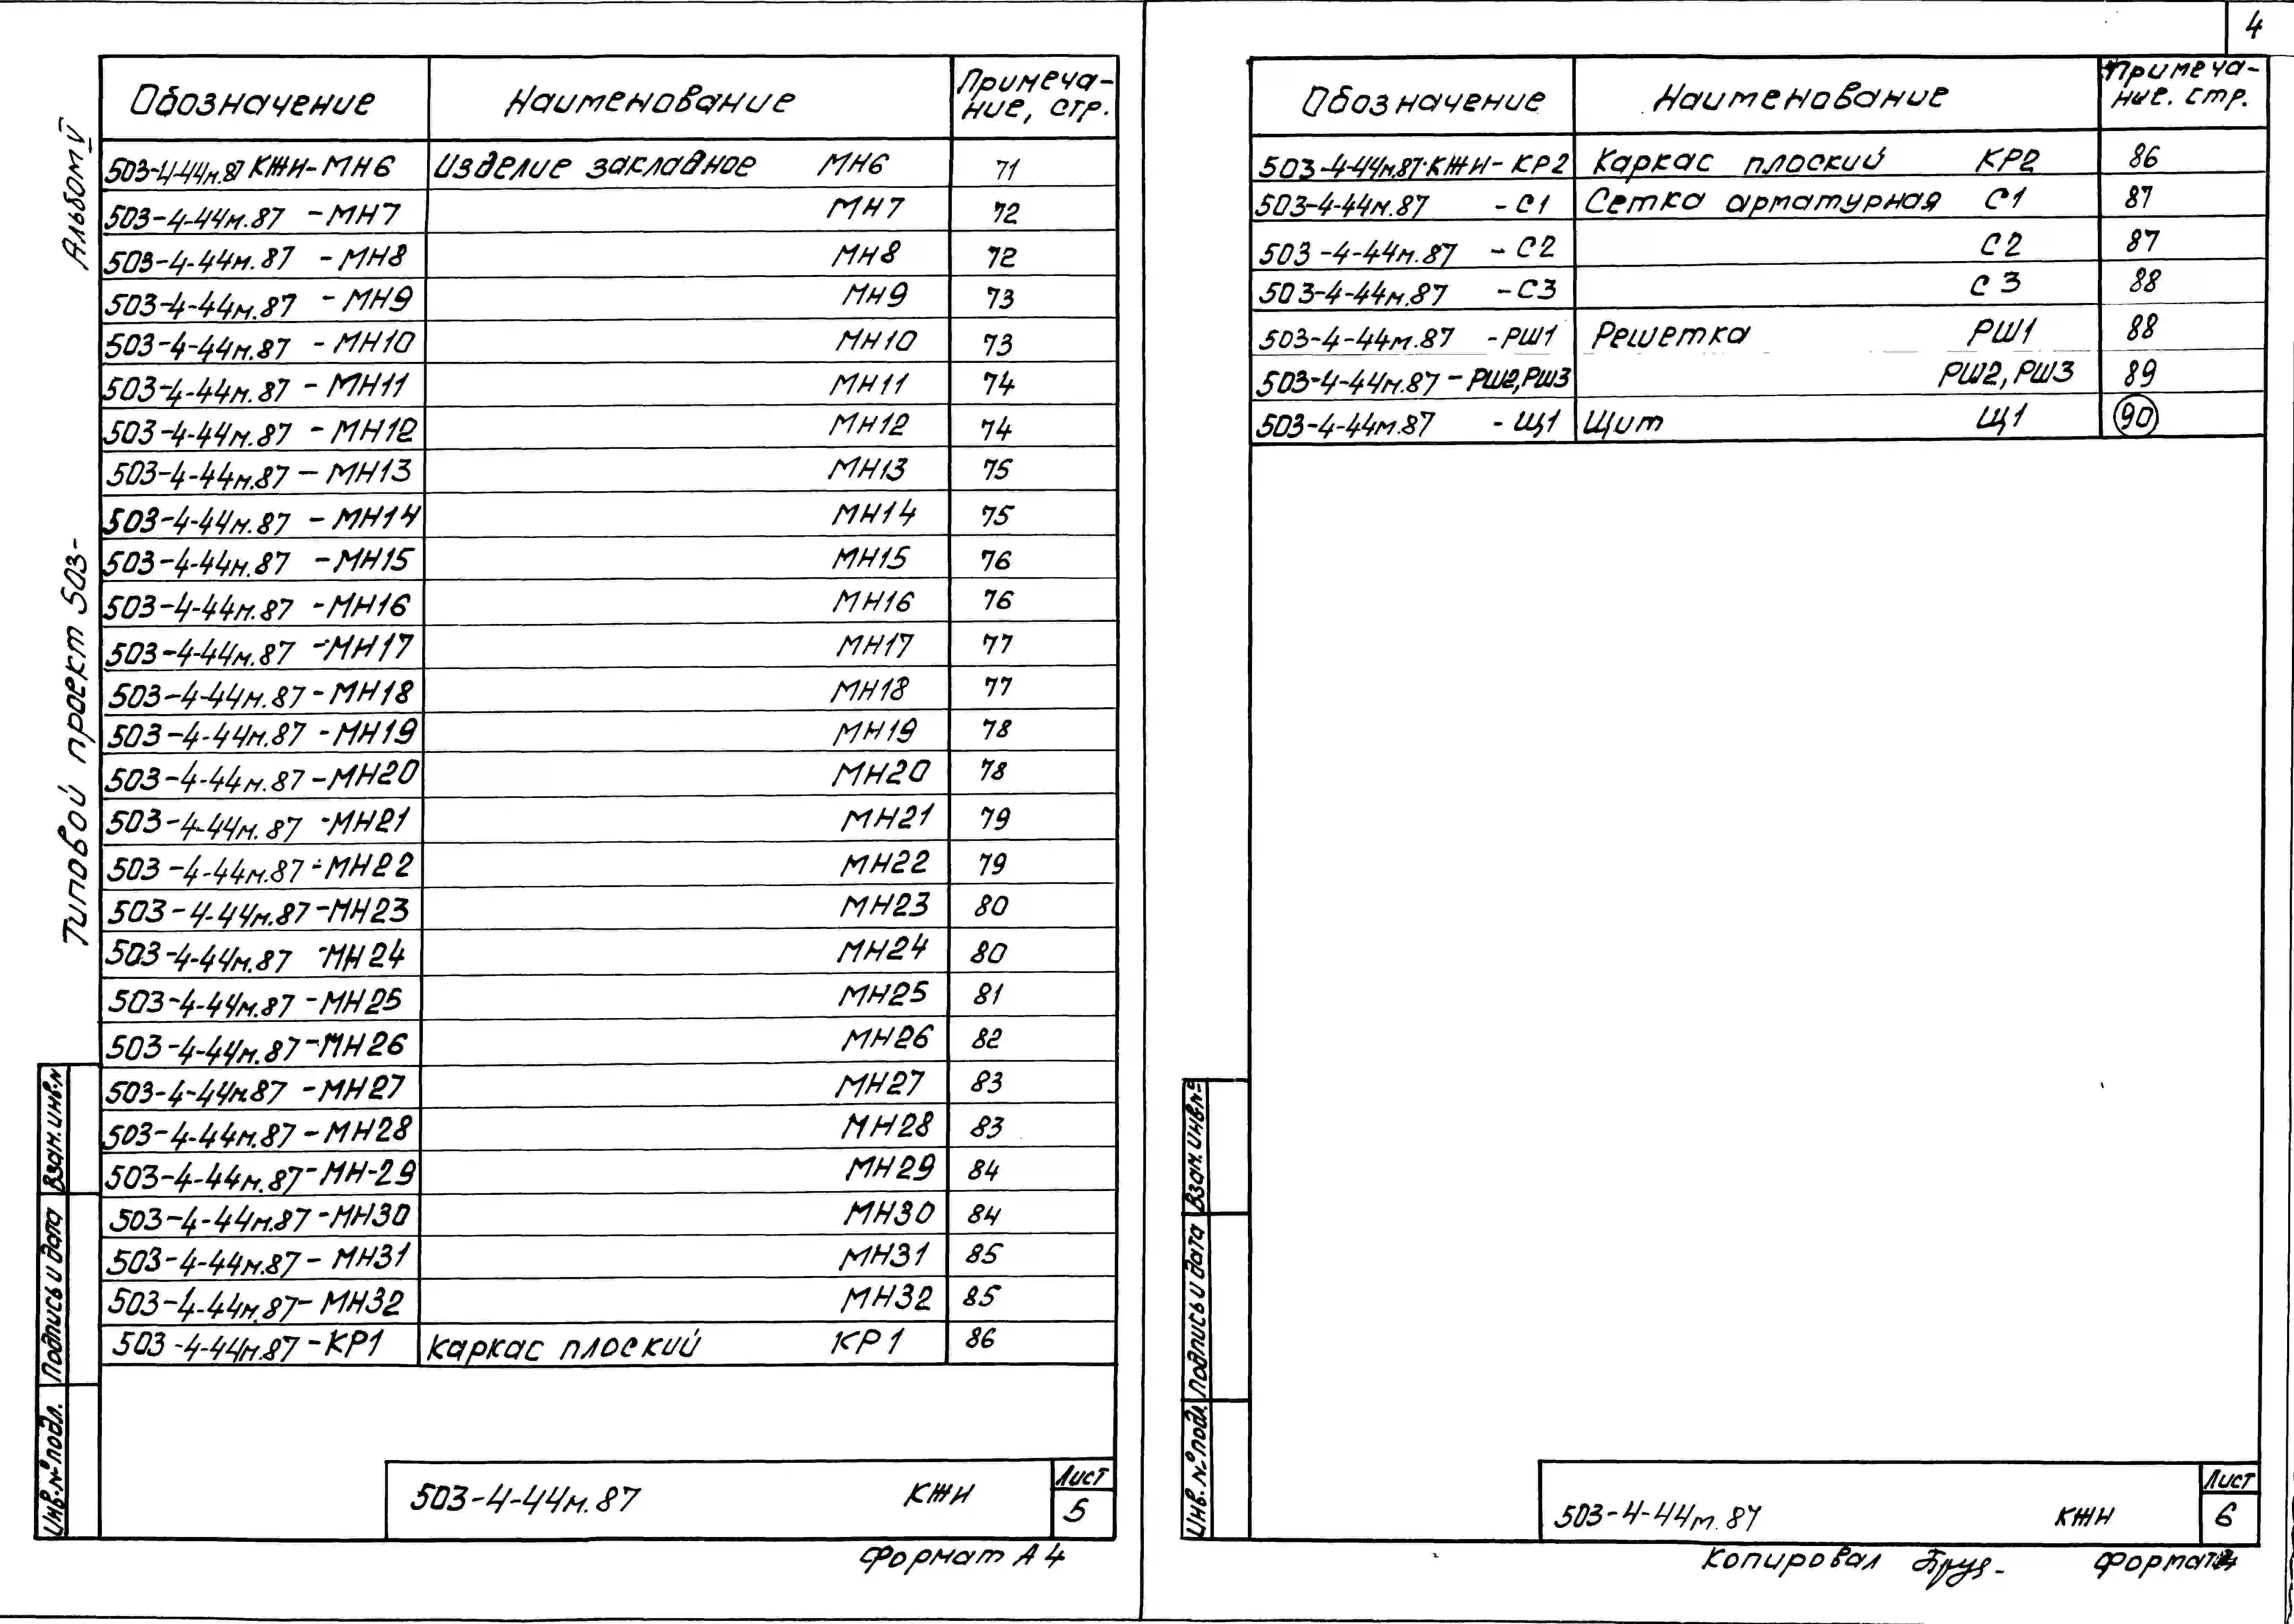 4
Альбом V
Типовой проект 503-
Обозначение Наименование Примеча-
ние, стр.
503-4-44м.87 КЖИ-МН6 Изделие закладное МН6 71
503-4-44м.87 -МН7 МН7 72
503-4-44м.87 -МН8 МН8 72
503-4-44м.87 -МН9 МН9 73
503-4-44м.87 -МН10 МН10 73
503-4-44м.87 -МН11 МН11 74
503-4-44м.87 -МН12 МН12 74
503-4-44м.87 -МН13 МН13 75
503-4-44м.87 -МН14 МН14 75
503-4-44м.87 -МН15 МН15 76
503-4-44м.87 -МН16 МН16 76
503-4-44м.87 -МН17 МН17 77
503-4-44м.87 -МН18 МН18 77
503-4-44м.87 -МН19 МН19 78
503-4-44м.87 -МН20 МН20 78
503-4-44м.87 -МН21 МН21 79
503-4-44м.87 -МН22 МН22 79
503-4-44м.87 -МН23 МН23 80
503-4-44м.87 -МН24 МН24 80
503-4-44м.87 -МН25 МН25 81
503-4-44м.87 -МН26 МН26 82
503-4-44м.87 -МН27 МН27 83
503-4-44м.87 -МН28 МН28 83
503-4-44м.87 -МН-29 МН29 84
503-4-44м.87 -МН30 МН30 84
503-4-44м.87 - МН31 МН31 85
503-4-44м.87 - МН32 МН32 85
503-4-44м.87 -КР1 каркас плоский КР1 86
Взам.инв.№
Подпись и дата
Инв.№подл.
503-4-44м.87 КЖИ Лист
5
Формат А4
Обозначение Наименование Примеча-
ние. стр.
503-4-44м.87·КЖИ- КР2 Каркас плоский КР2 86
503-4-44м.87 -С1 Сетка арматурная С1 87
503-4-44м.87 -С2 С2 87
503-4-44м.87 -С3 С3 88
503-4-44м.87 -РШ1 Решетка РШ1 88
503-4-44м.87 -РШ2,РШ3 РШ2,РШ3 89
503-4-44м.87 -Щ1 Щит Щ1 90
Взам.инв.№
Подпись и дата
Инв.№подл.
503-4-44м.87 КЖИ Лист
6
Копировал Формат